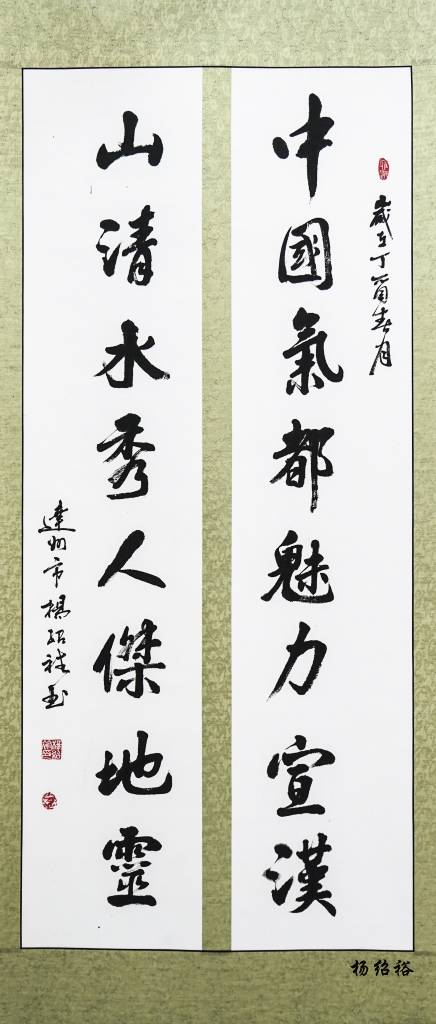 歲在丁酉春月
中國氣都魅力宣漢
山清水秀人傑地靈
達州市楊紹裕書
杨绍裕